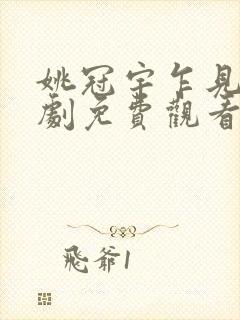 姚冠宇乍見
劇免費觀看
飛爺1